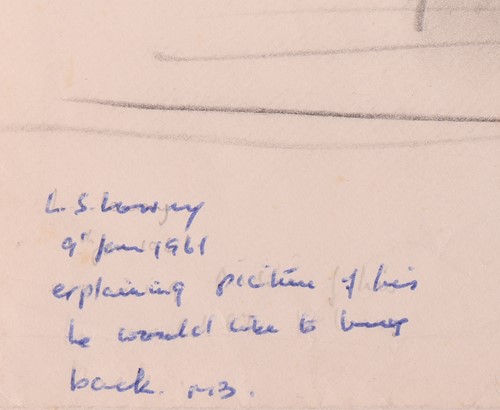 L.S. Lowry
9th Jan 1961
explaining picture of his
he would like to buy
back. M.B.